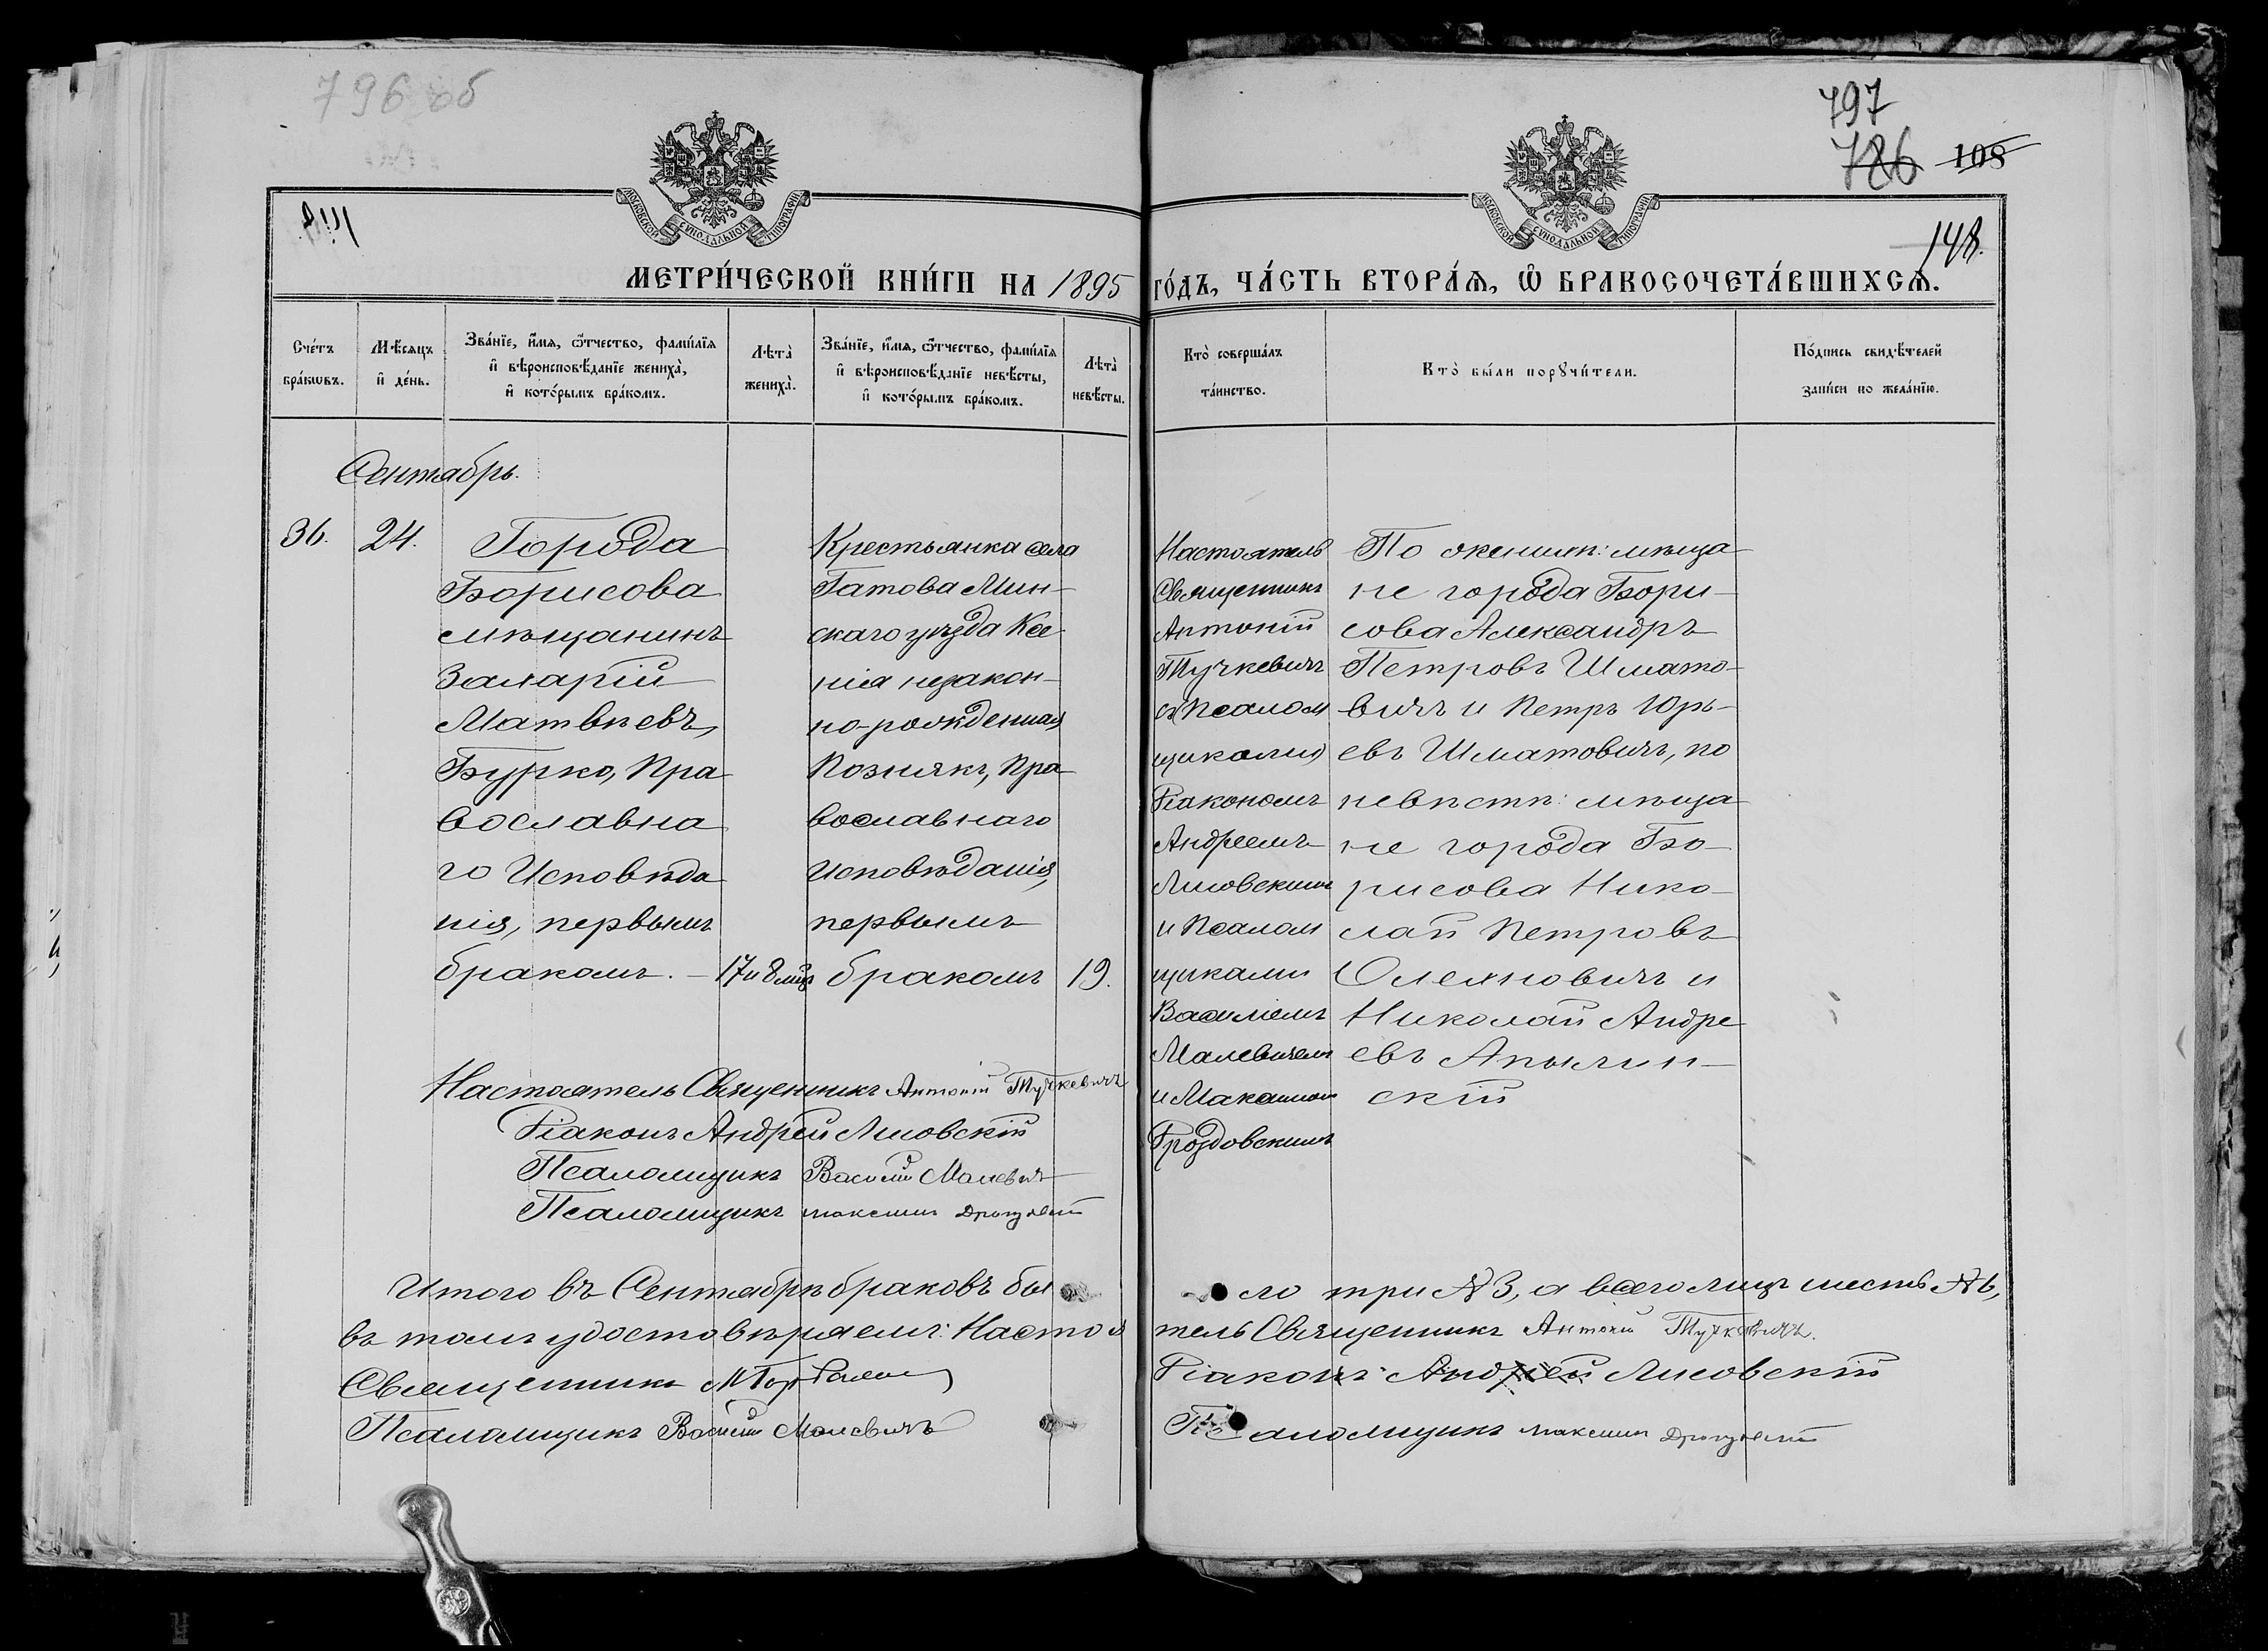 796 об
797
786 108
148.
МОСКОВСКОЙ СѴНОДАЛЬНОЙ ТИПОГРАФІИ
МОСКОВСКОЙ СѴНОДАЛЬНОЙ ТИПОГРАФІИ
МЕТРИ́ЧЕСКОЙ КНИ́ГИ НА 1895 ГО́ДЪ, ЧА́СТЬ ВТОРА́Ѧ, Ѽ БРАКОСОЧЕТА́ВШИХСѦ.
Сче́тъ
бра́кѡвъ.
Мѣ́сяцъ
и҆ де́нь.
Зва́нїе, и҆́мѧ, ѻ҆́тчество, фами́лїѧ
и҆ вѣроисповѣ́данїе жениха̀,
и҆ кото́рымъ бра́комъ.
Лѣта̀
жениха̀.
Зва́нїе, и҆́мѧ, ѻ҆́тчество, фами́лїѧ
и҆ вѣроисповѣ́данїе невѣ́сты,
и҆ кото́рымъ бра́комъ.
Лѣта̀
невѣ́сты.
Кто̀ соверша́лъ
та́инство.
Кто̀ бы́ли порꙋчи́тели.
По́дпись свидѣ́телей
за́писи по жела́нїю.
Сентябрь.
36.
24.
Города
Борисова
мѣщанинъ
Захарій
Матвѣевъ
Бурко, Пра
вославна
го Исповѣда
нія, первымъ
бракомъ. –
17 и 8 мѣц
Крестьянка села
Гатова Мин-
скаго уѣзда Ксе
нія незакон-
но-рожденная
Познякъ, Пра
вославнаго
Исповѣданія,
первымъ
бракомъ
19.
Настоятель
Священникъ
Антоній
Тучкевичъ
съ Псалом
щикомъ
Діакономъ
Андреемъ
Лисовскимъ
и Псалом
щиками
Василіемъ
Малевичемъ
и Максимом
Дроздовскимъ
По женихѣ: мѣща
не города Бори-
сова Александръ
Петровъ Шмато-
вичъ и Петръ Юрь-
евъ Шматовичъ, по
невѣстѣ: мѣща
не города Бо-
рисова Нико-
лай Петровъ
Олехновичъ и
Николай Андре
евъ Апылин-
скій
Настоятель Священникъ Антоній Тучкевичъ
Діаконъ Андрей Лисовскій
Псаломщикъ Василій Малевичъ
Псаломщикъ Максимъ Дроздовскій
Итого въ Сентябрѣ браковъ бы ло три № 3, а всего лицъ шесть № 6,
въ томъ удостовѣряемъ: Настоя тель Священникъ Антоній Тучкевичъ.
Священникъ Діаконъ Андрей Лисовскій
Псаломщикъ Василій Малевичъ Псаломщикъ Максимъ Дроздовскій